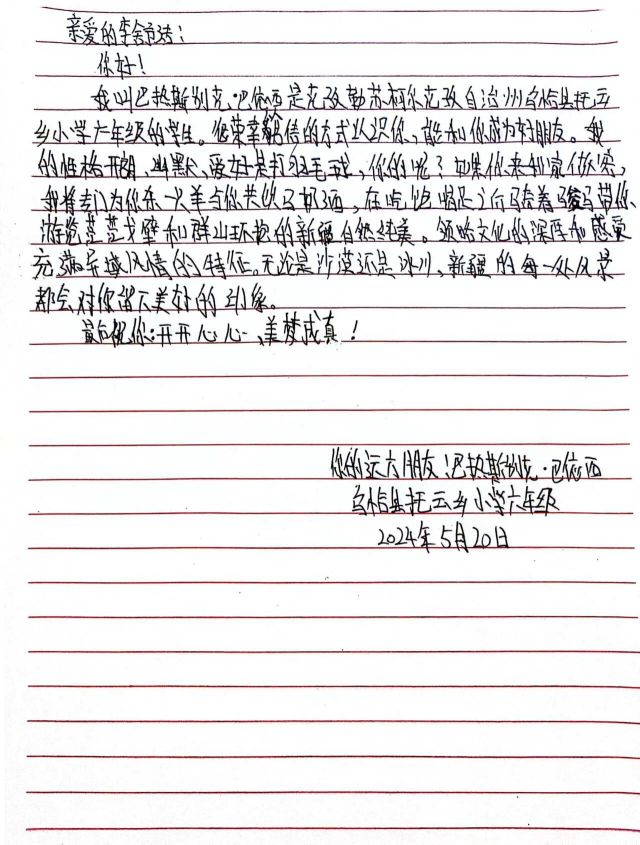 亲爱的李舒涵：
你好！
我叫巴热斯别克·巴依西是克孜勒苏柯尔克孜自治州乌恰县托云
乡小学六年级的学生。很荣幸能以书信的方式认识你，能和你成为好朋友。我
的性格开朗、幽默、爱好是打羽毛球，你的呢？如果你来我家做客，
我将专门为你杀一只羊与你共饮马奶酒，在吃饱喝足之后骑着骏马带你
游览茫茫戈壁和群山环抱的新疆自然纯美。领略文化的深厚和感受
充满异域风情的特征。无论是沙漠还是冰川，新疆的每一处风景
都会对你留下美好的印象。
最后祝你：开开心心、美梦成真！
你的远方朋友：巴热斯别克·巴依西
乌恰县托云乡小学六年级
2024年5月20日